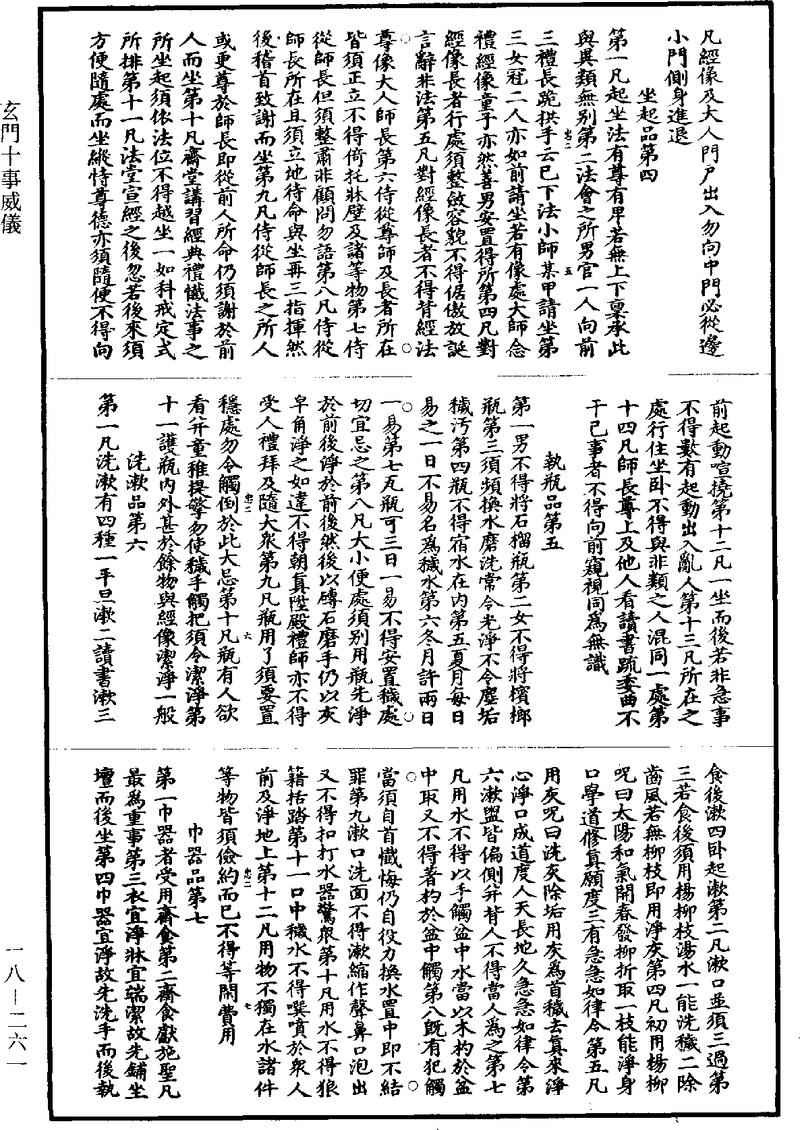 凡經像及大人門戶出入勿向中門必從邊
小門側身進退
坐起品第四
第一凡起坐法有尊有卑若無上下稟承此
與異類無別第二法會之所男官一人向前
三禮長跪拱手云已下法小師某甲請坐第
三女冠二人亦如前請坐若有像處大師念
禮經像童子亦然善男安置得所第四凡對
經像長者行處須整斂容貌不得倨傲放誕
言辭非法第五凡對經像長者不得背經法
尊像大人師長第六侍從尊師及長者所在
皆須正立不得倚托牀壁及諸等物第七侍
從師長但須整肅非顧問勿語第八凡侍從
師長所在且須立地待命與坐再三指揮然
後稽首致謝而坐第九凡侍從師長之所人
或更尊於師長即從前人所命仍須謝於前
人而坐第十凡齋堂講習經典禮懺法事之
所坐起須依法位不得越坐一如科戒定式
所排第十一凡法堂宣經之後忽若後來須
方便隨處而坐縱恃尊德亦須隨便不得向
前起動喧撓第十二凡一坐而後若非急事
不得數有起動出入亂人第十三凡所在之
處行住坐臥不得與非類之人混同一處第
十四凡師長尊上及他人看讀書疏委曲不
干己事者不得向前窺視同為無識
執瓶品第五
第一男不得將石榴瓶第二女不得將檳榔
瓶第三須頻換水磨洗常令光淨不令塵垢
穢污第四瓶不得宿水在內第五夏月每日
易之一日不易名為穢水第六冬月許兩日
一易第七瓦瓶可三日一易不得安置穢處
切宜忌之第八凡大小便處須別用瓶先淨
於前後淨於前後然後以磚石磨手仍以灰
皁角淨之如違不得朝真陞殿禮師亦不得
受人禮拜及隨大衆第九凡瓶用了須要置
穩處勿令觸倒於此大忌第十凡瓶有人欲
看并童稚提擎勿使穢手觸把須令潔淨第
十一護瓶內外甚於餘物與經像潔淨一般
洗漱品第六
第一凡洗漱有四種一平旦漱二讀書漱三
食後漱四臥起漱第二凡漱口並須三過第
三若食後須用楊柳枝湯水一能洗穢二除
齒風若無柳枝即用淨灰第四凡初用楊柳
呪曰太陽和氣開春發柳折取一枝能淨身
口學道修真願度三有急急如律令第五凡
用灰呪曰洗灰除垢用灰為首穢去真來淨
心淨口成道度人天長地久急急如律令第
六漱盥皆偏側并背人不得當人為之第七
凡用水不得以手觸盆中水當以木杓於盆
中取又不得著杓於盆中觸第八既有犯觸
當須自首懺悔仍自役力換水置中即不結
罪第九漱口洗面不得漱縮作聲鼻口泡出
又不得扣打水器驚衆第十凡用水不得狼
籍括踏第十一口中穢水不得噀噴於衆人
前及淨地上第十二凡用物不獨在水諸件
等物皆須儉約而已不得等閑費用
巾器品第七
第一巾器者受用齋食第二齋食獻施聖凡
最為重事第三衣宜淨牀宜端潔故先鋪坐
壇而後坐第四巾器宜淨故先洗手而後執
玄門十事威儀
一八—二六一